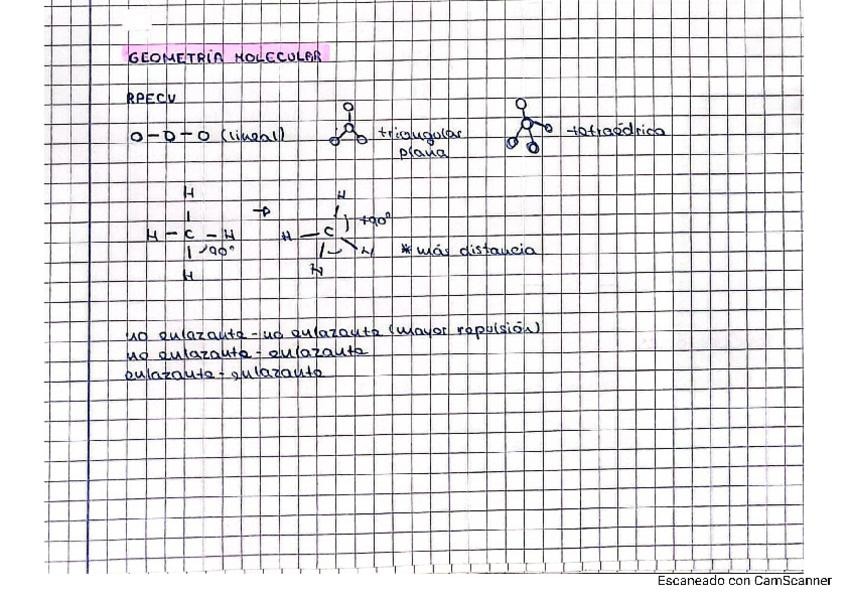 GEOMETRÍA MOLECULAR
RPECV
O-O-O (lineal)
triangular
plana
tetraédrica
H
H - C - H
90º
H
→
H
H - C
+90º
H
H
* más distancia
no enlazante - no enlazante (mayor repulsión)
no enlazante - enlazante
enlazante - enlazante
Escaneado con CamScanner